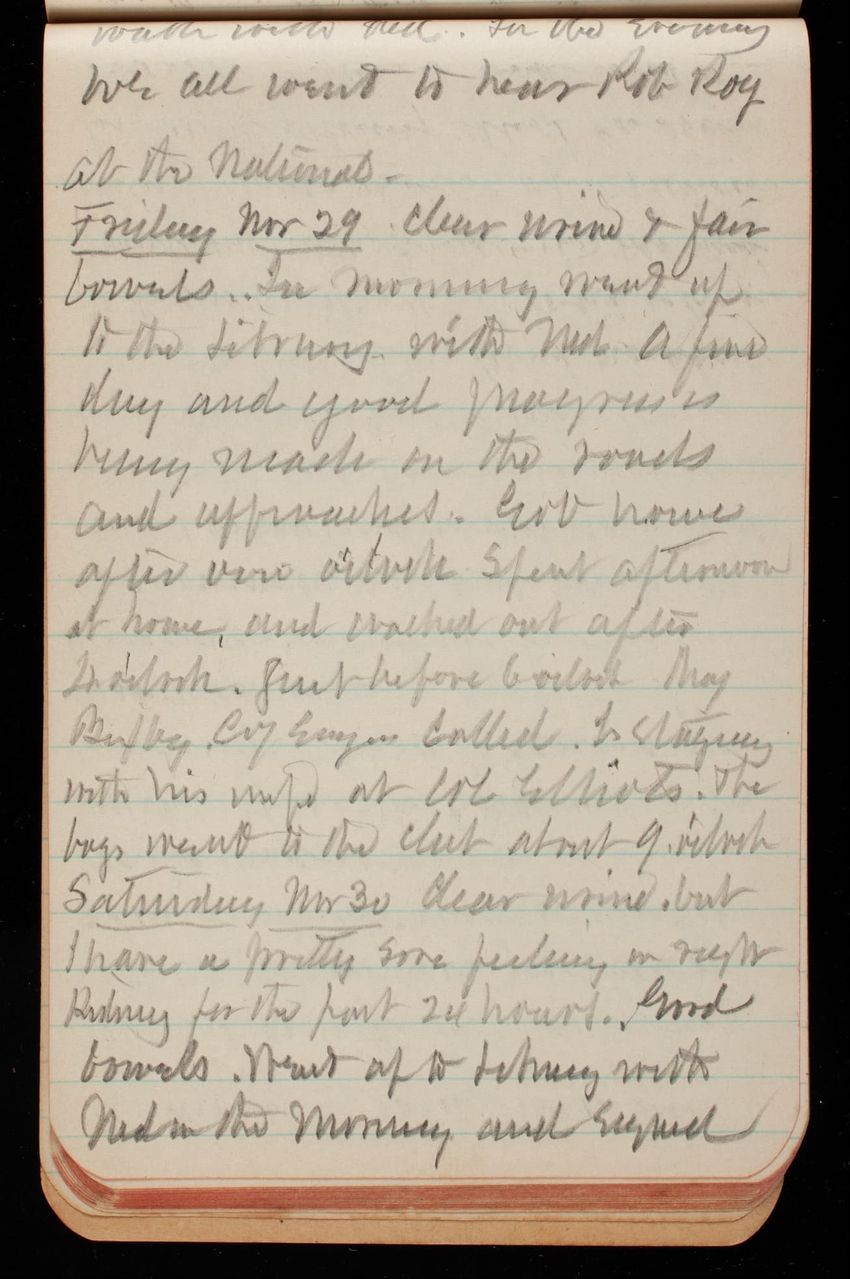 walk with Ned. In the Evening
We all went to hear Rob Roy
at the National.
Friday Nov 29 clear urine & fair
bowels.. In morning went up
to the Library with Ned. A fine
day and good progress is
being made on the roads
and approaches. Got home
after one o'clock Spent afternoon
at home, and walked out after
4 o'clock. Just before 6 o'clock Maj
Bixby. C of Engrs Called. Is staying
with his wife at Col Elliots. The
boys went to the club about 9 o'clock
Saturday Nov 30 Clear urine. but
I have a pretty sore feeling in right
Kidney for the past 24 hours. Good
bowels. Went up to Library with
Ned in the Morning and